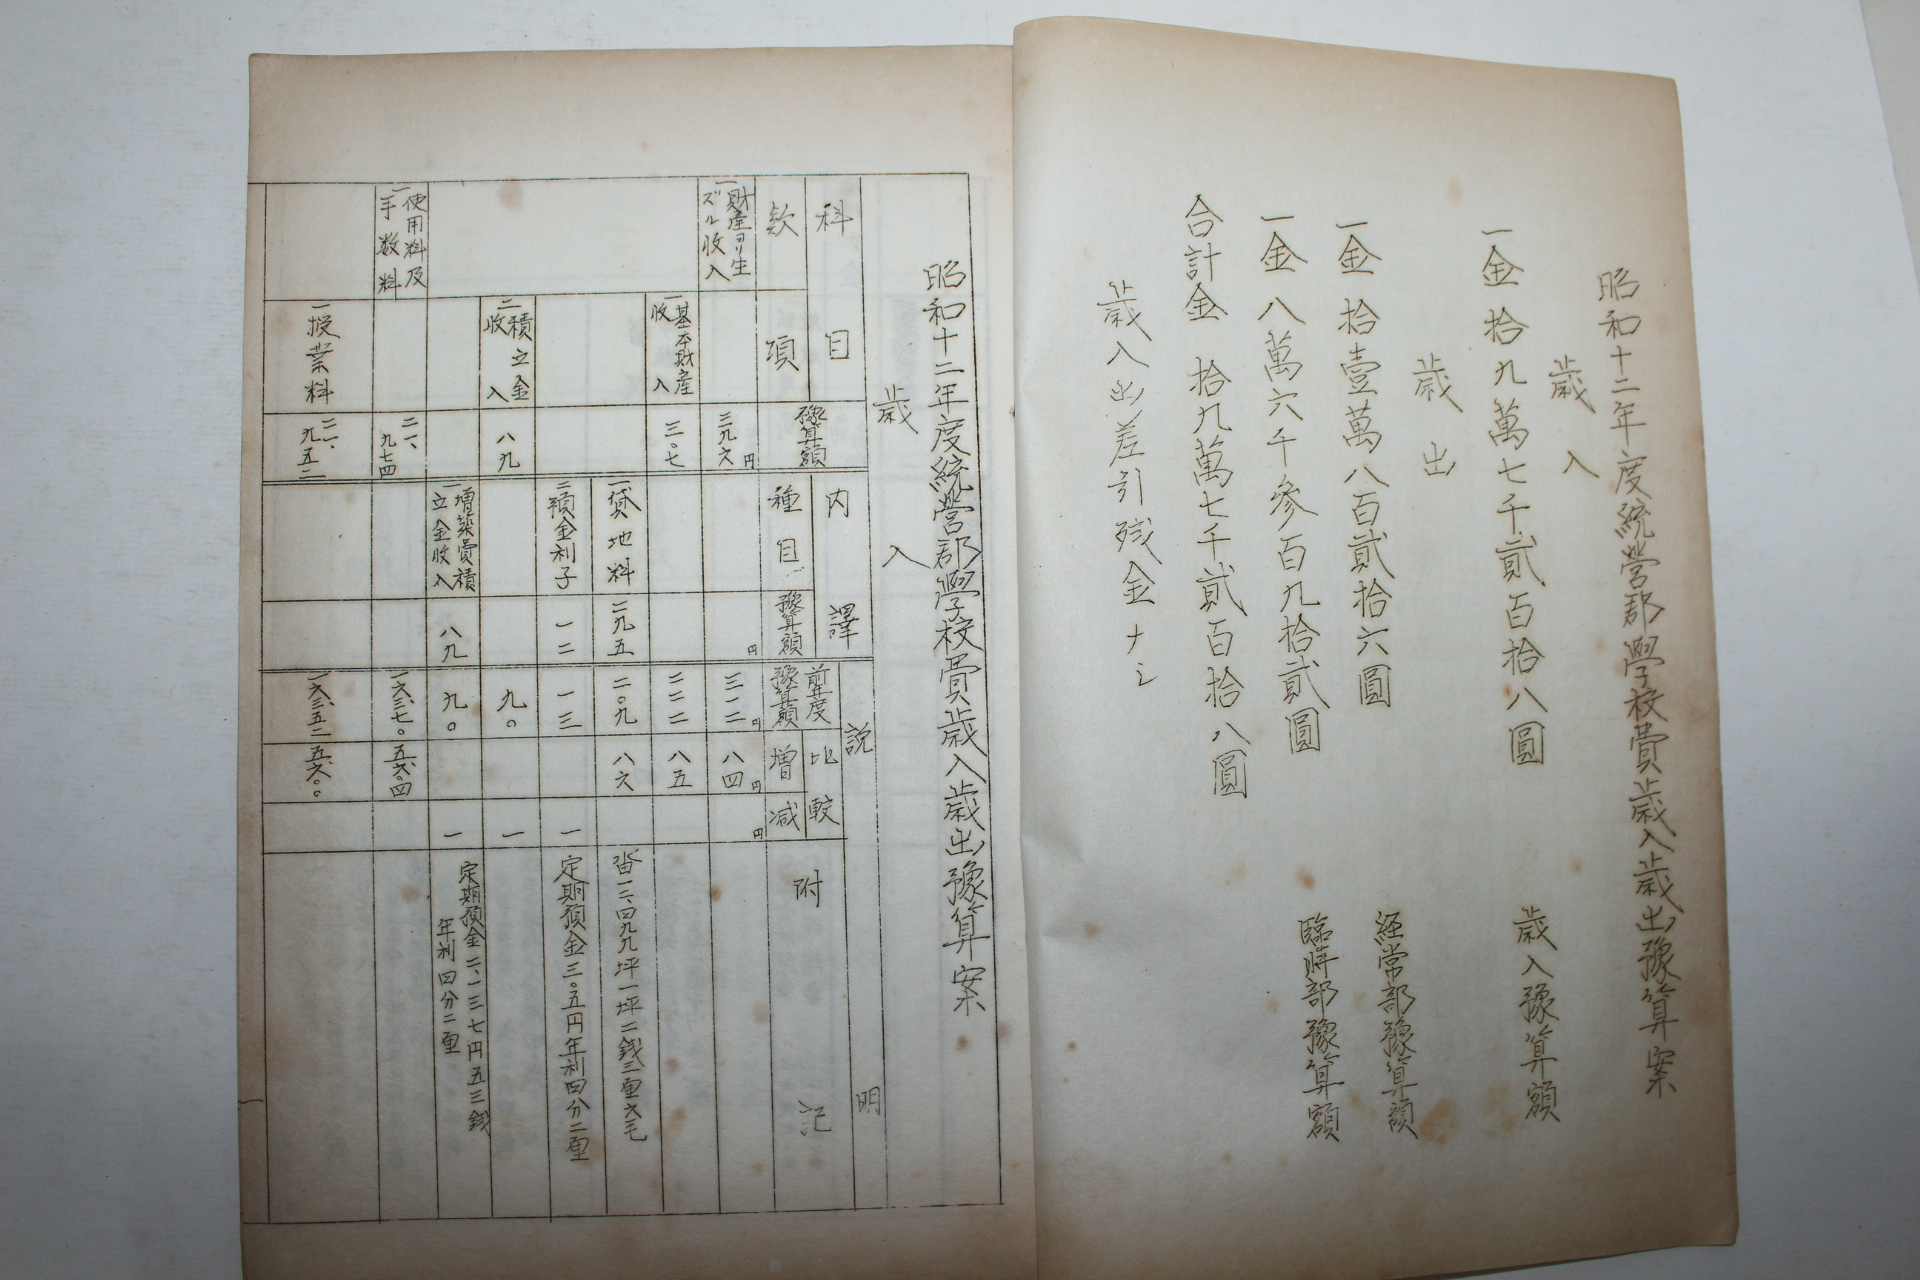 昭和十二年度統営郡學校費歳入歳出豫算案
歳入
一金拾九萬七千貳百拾八圓 歳入豫算額
歳出
一金拾壹萬八百貳拾六圓 経常部豫算額
一金八萬六千參百九拾貳圓 臨時部豫算額
合計金 拾九萬七千貳百拾八圓
歳入出差引残金ナシ
昭和十二年度統営郡學校費歳入歳出豫算案
歳入
科目 内譯 説明
款 項 豫算額 種目 豫算額 前年度豫算額 比較 増 減 附記
一財産ヨリ生ズル收入 三九六円 円 三一二円 八四円 円
一基本財産收入 三〇七 二二二 八五
一貸地料 二九五 二〇九 八六 畓一二、四九九坪一坪二銭三厘六毛
二預金利子 一二 一三 一 定期預金三〇五円年利四分二厘
二積立金收入 八九 九〇 一
一増築費積立金收入 八九 九〇 一 定期預金二、一三七円五三銭
年利四分二厘
一使用料及手数料 二一、九七四 一六、三七〇 五、六〇四
一授業料 二一、九五二 一六、三五二 五、六〇〇